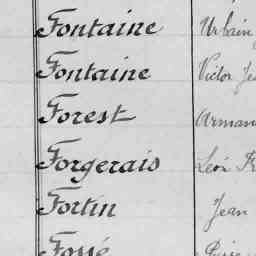 Fontaine Urbain
Fontaine Victor Je
Forest Arman
Forgerais Léon Fr
Fortin Jean
Fossé